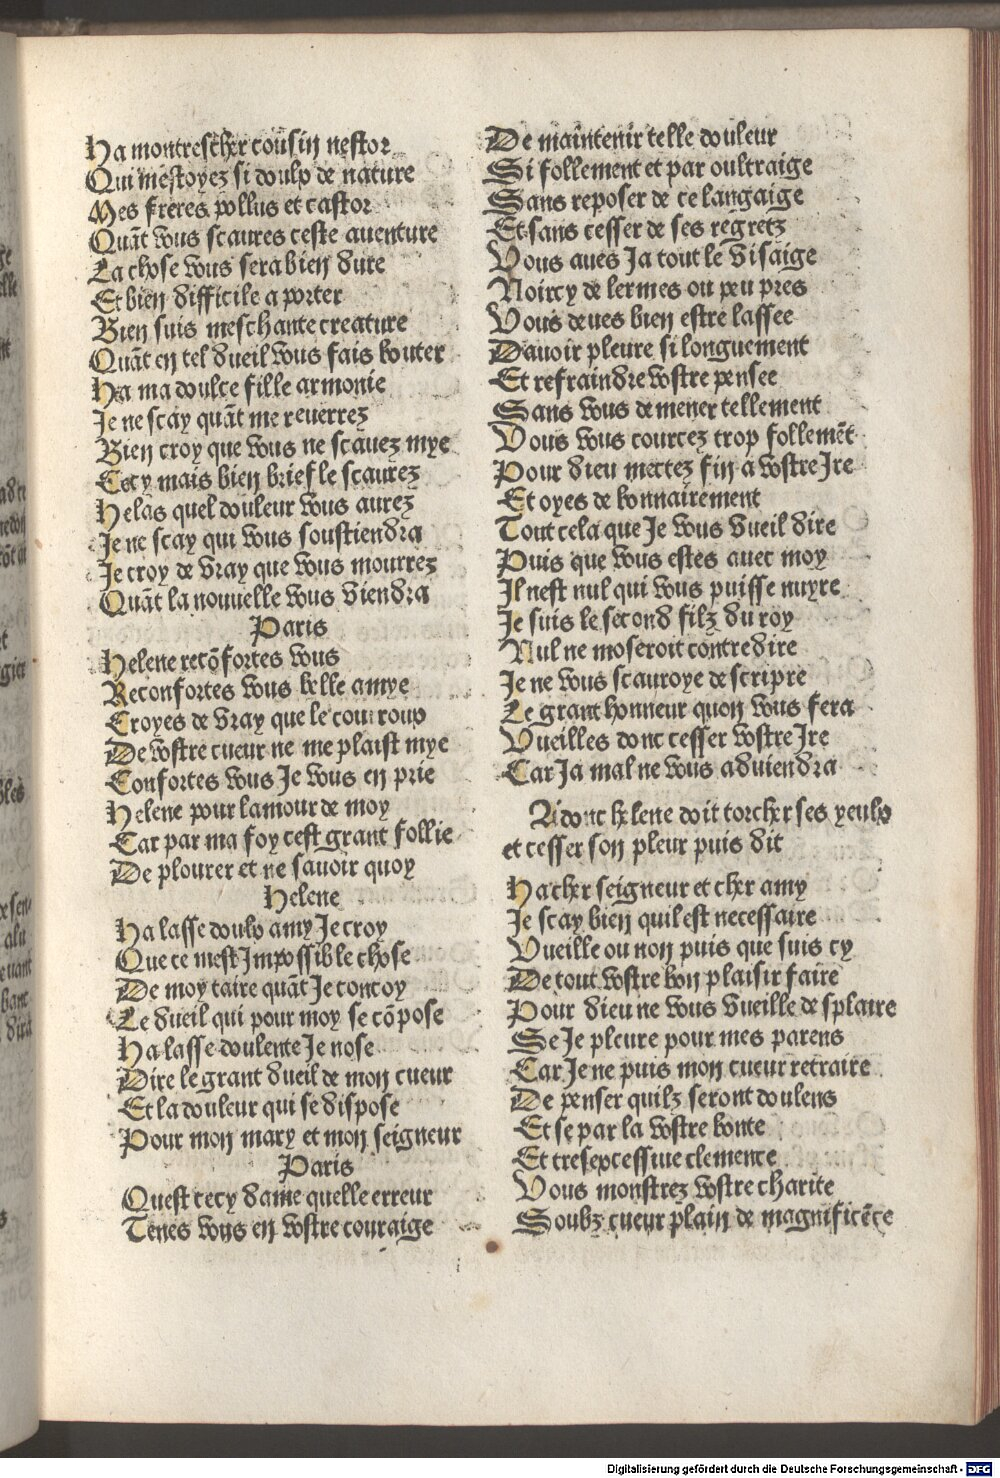 Ha montrescher cousin nestor
Qui mestoyez si doulx de nature
Mes freres pollus et castor
Quãt vous scaures ceste auenture
La chose vous sera bien dure
Et bien difficile a porter
Bien suis meschante creature
Quãt en tel dueil vous fais bouter
Ha ma doulce fille armonie
Je ne scay quãt me reuerrez
Bien croy que vous ne scauez mye
Cecy mais bien brief le scaurez
Helas quel douleur vous aurez
Je ne scay qui vous soustiendra
Je croy de vray que vous mourrez
Quãt la nouuelle vous viendra
Paris
Helene recõfortes vous
Reconfortes vous belle amye
Croyes de vray que le courroup
De vostre cueur ne me plaist mye
Confortes vous Je vous en prie
Helene pour lamour de moy
Car par ma foy cest grant follie
De plourer et ne sauoir quoy
Helene
Ha lasse doulx amy Je croy
Que ce mest Impossible chose
De moy taire quãt Je concoy
Le dueil qui pour moy se cõpose
Ha lasse doulente Je nose
Dire le grant dueil de mon cueur
Et la douleur qui se dispose
Pour mon mary et mon seigneur
Paris
Quest cecy dame quelle erreur
Tenes vous en vostre couraige
De maintenir telle douleur
Si follement et par oultraige
Sans reposer de ce langaige
Et sans cesser de ses regretz
Vous aues Ja tout le visaige
Noircy de lermes ou peu pres
Vous deues bien estre lassee
Dauoir pleure si longuement
Et refraindre vostre pensee
Sans vous demener tellement
Vous vous courcez trop follemẽt
Pour dieu mectez fin a vostre Jre
Et oyes de bonnairement
Tout cela que Je vous vueil dire
Puis que vous estes auec moy
Il nest nul qui vous puisse nuyre
Je suis le second filz du roy
Nul ne moseroit contredire
Je ne vous scauroye descripre
Le grant honneur quon vous fera
Vueilles donc cesser vostre Jre
Car Ja mal ne vous aduiendra
Adonc helene doit torcher ses yeulx
et cesser son pleur puis dit
Ha cher seigneur et cher amy
Je scay bien quil est necessaire
Vueille ou non puis que suis cy
De tout vostre bon plaisir faire
Pour dieu ne vous vueille desplaire
Se Je pleure pour mes parens
Car Je ne puis mon cueur retraire
De penser quilz seront doulens
Et se par la vostre bonte
Et tresexcessiue clemence
Vous monstrez vostre charite
Soubz cueur plain de magnificẽce
Digitalisierung gefördert durch die Deutsche Forschungsgemeinschaft - DFG